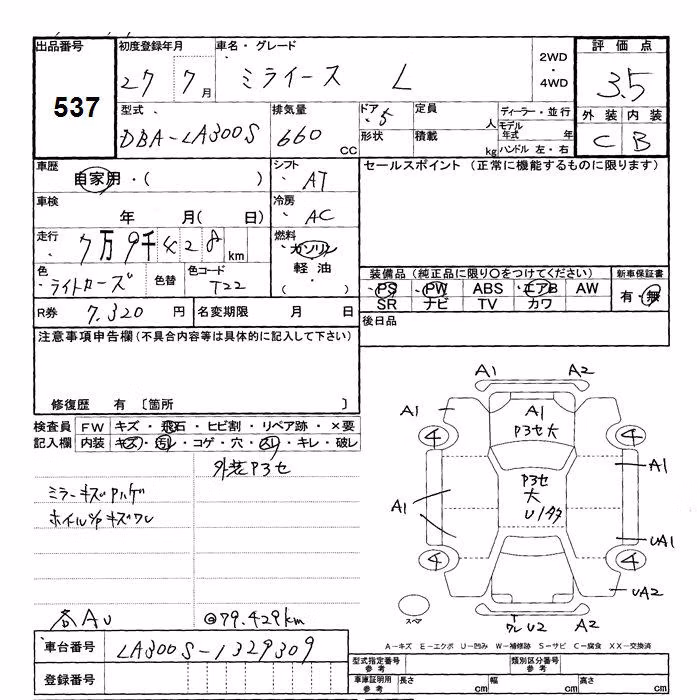 出品番号 初度登録年月 車名・グレード 2WD・4WD 評価点
537 27 7月 ミライース L 3.5
型式 排気量 ドア 定員 人 ディーラー・並行 外装 内装
DBA-LA300S 660 cc 5 形状 積載 kg モデル年式 年 ハンドル 左・右 C B
車歴 自家用・( ) シフト AT セールスポイント (正常に機能するものに限ります)
車検 年 月( 日) 冷房 AC
走行 7万9千428km 燃料 ガソリン 軽油 ( )
色 ライトローズ 色替 色コード T22
装備品 (純正品に限り〇をつけてください) 新車保証書
PS PW ABS エアB AW 有・無
SR ナビ TV カワ
R券 7,320円 名変期限 月 日 後日品
注意事項申告欄 (不具合内容等は具体的に記入して下さい)
修復歴 有 〔箇所 〕
検査員 FW キズ・飛石・ヒビ割・リペア跡・×要
記入欄 内装 キズ・汚レ・コゲ・穴・スレ・キレ・破レ
外装P3セ
ミラーキズPハゲ
ホイルC/Pキズワレ
各AU @79.429km
A1 A2
A1 A1
P3セ大
4 4
A1 P3セ 大 U1多 A1
UA1
4 4
UA2
スペア ワレ U2 A2
A-キズ E-エクボ U-凹み W-補修跡 S-サビ C-腐食 XX-交換済
車台番号 LA300S-1329309
型式指定番号 参考 類別区分番号 参考
登録番号
車庫証明用 参考 長さ cm 幅 cm 高さ cm